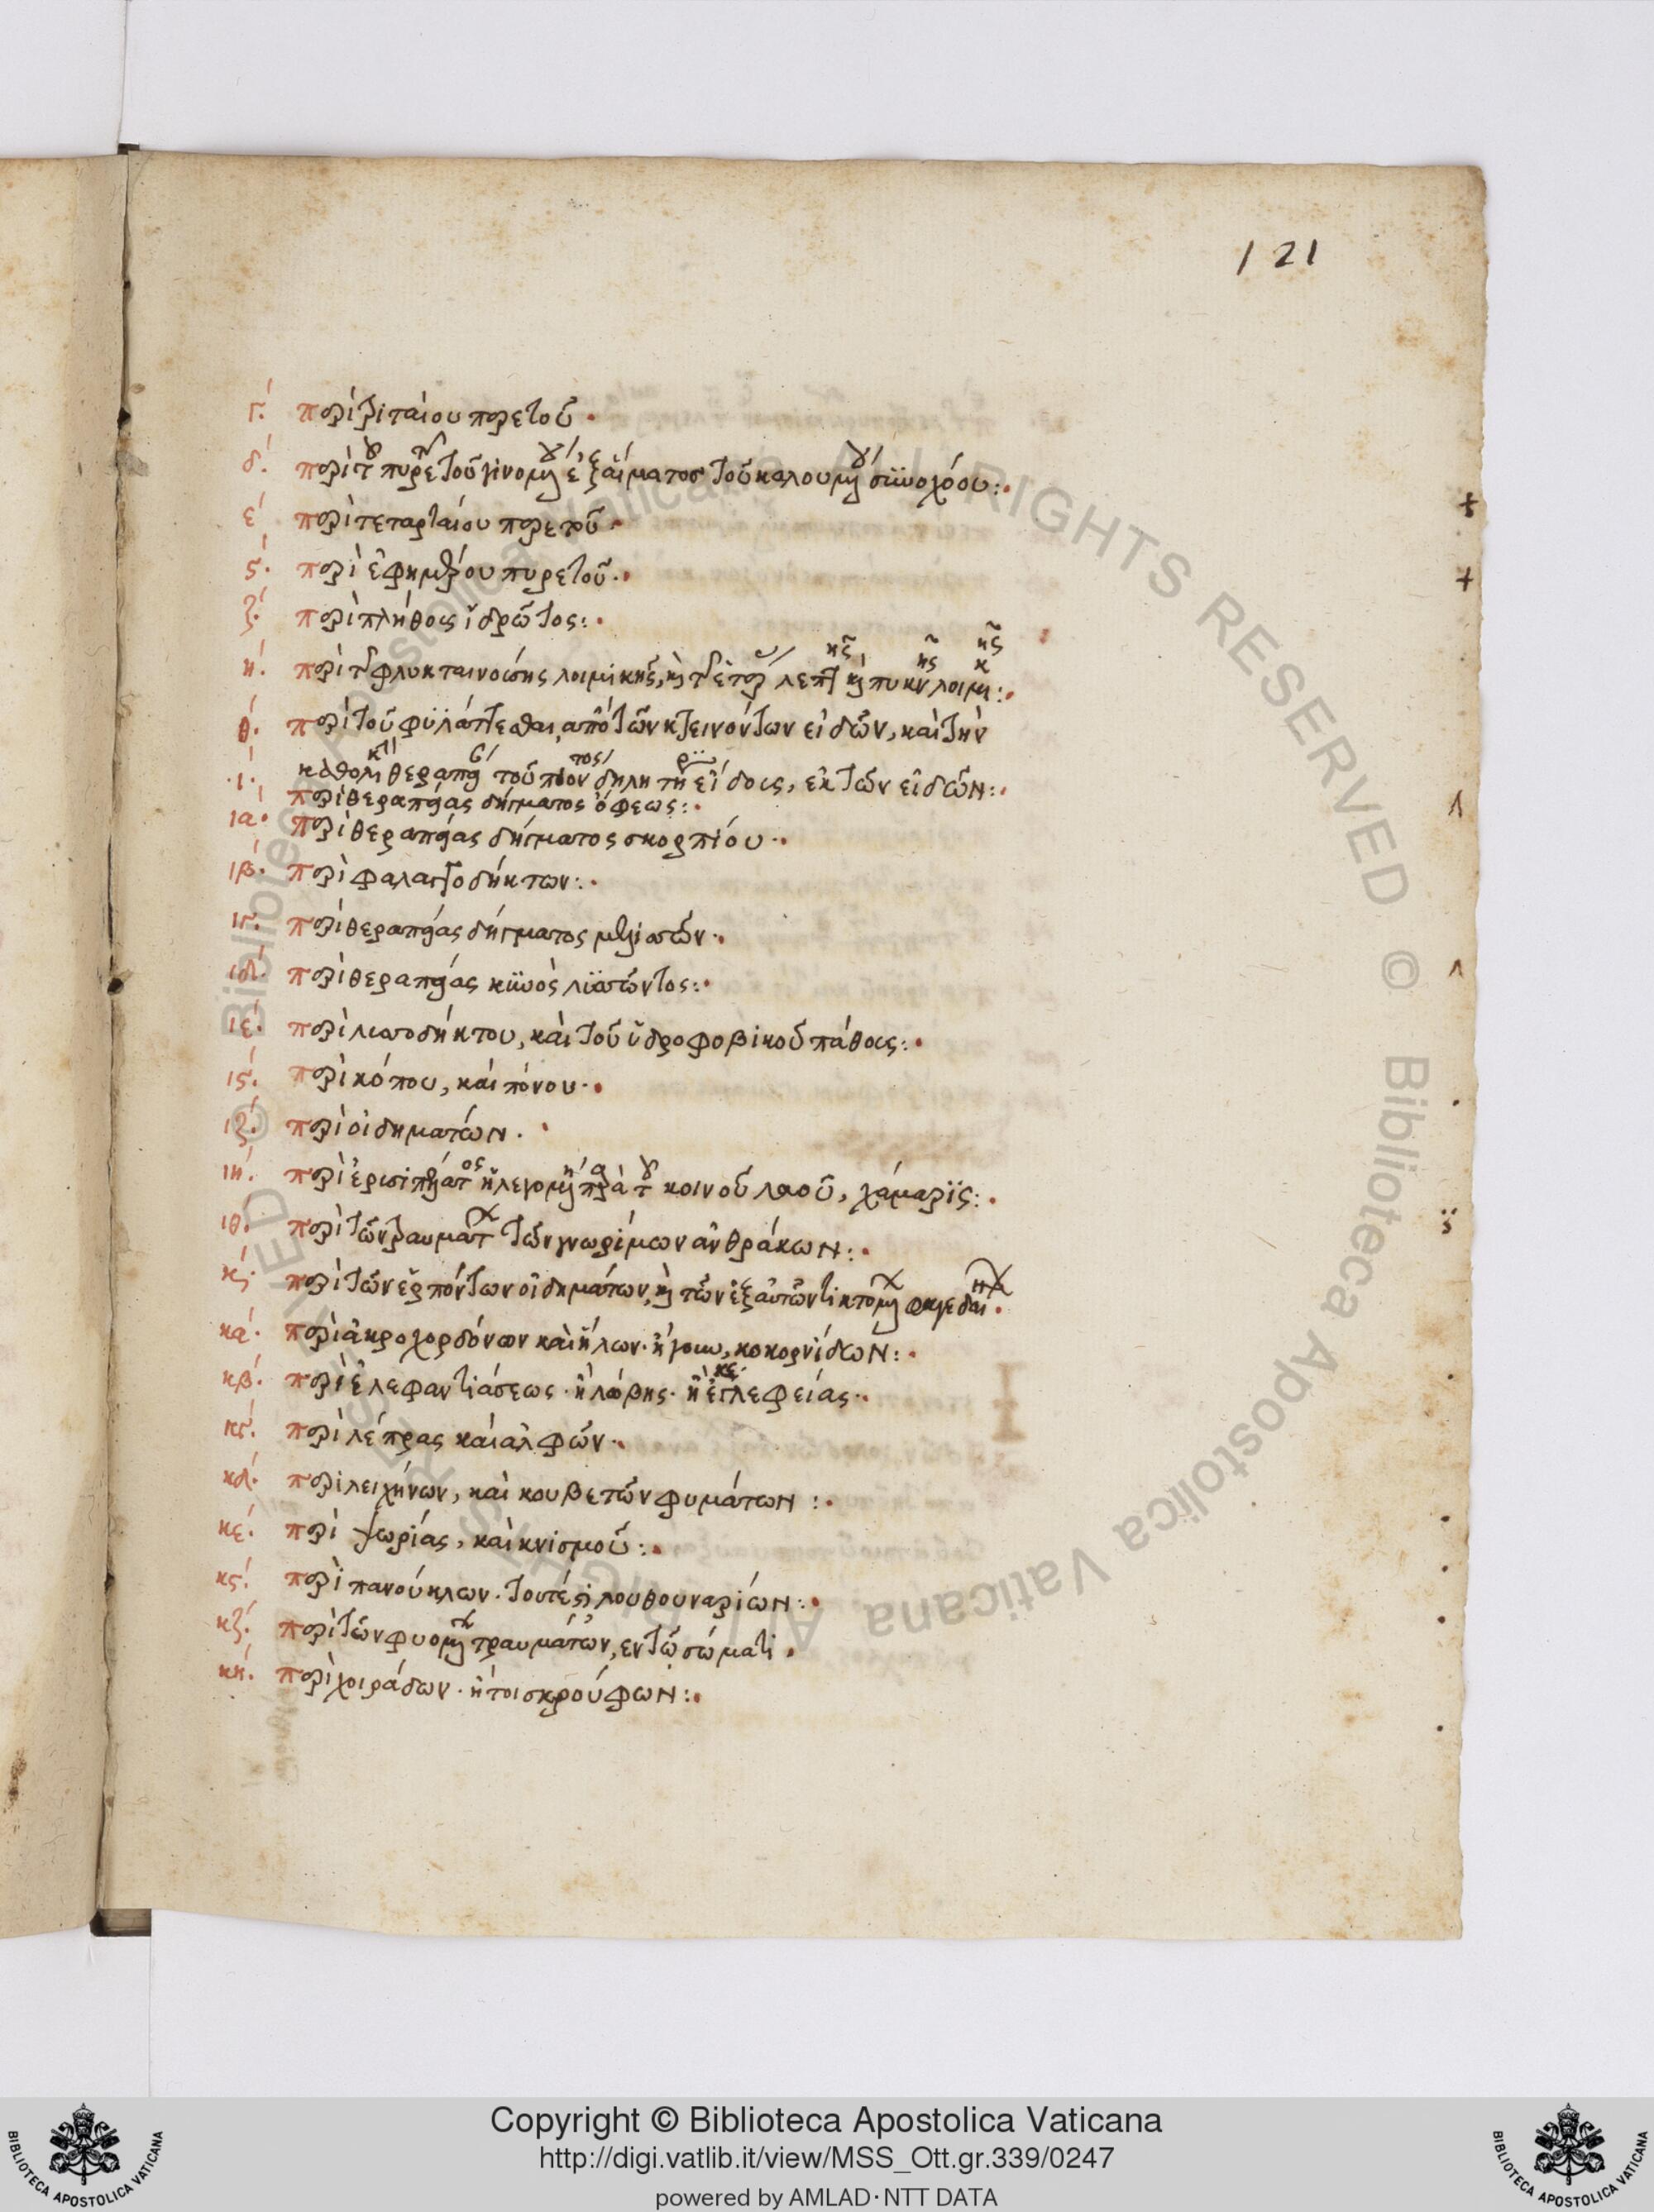 121
γ΄. περὶ τριταίου πυρετοῦ.
δ΄. περὶ τοῦ πυρετοῦ γινομένου ἐξ αἵματος τοῦ καλουμένου συνόχου:.
ε΄ περὶ τεταρταίου πυρετοῦ.
ς΄. περὶ ἐφημέρου πυρετοῦ.
ζ΄. περὶ πλήθους ἱδρῶτος:.
η΄. περὶ τῆς φλυκταινούσης λοιμικῆς, καὶ τῆς ἑτέρ λεπτῆς καὶ πυκνῆς λοιμικῆς:.
θ΄. περὶ τοῦ φυλάττεσθαι, ἀπὸ τῶν κτεινόντων εἰδῶν, καὶ τὴν
καθολικὴ θεραπεί τοῦ δηλητηρί εἴδους, ἐκ τῶν εἰδῶν:.
ι΄ περὶ θεραπείας δήγματος ὄφεως:.
ια΄. περὶ θεραπείας δήγματος σκορπίου.
ιβ΄. περὶ φαλαγγοδήκτων:.
ιγ΄. περὶ θεραπείας δήγματος μελισσῶν.
ιδ΄. περὶ θεραπείας κυνὸς λυσσῶντος:.
ιε΄. περὶ λυσσοδήκτου, καὶ τοῦ ὑδροφοβικοῦ πάθους:.
ις΄. περὶ κόπου, καὶ πόνου.
ιζ΄. περὶ οἰδημάτων.
ιη΄. περὶ ἐρισιπελατος ἢ λεγομένη παρὰ τοῦ κοινοῦ λαοῦ, χάμαρις:.
ιθ΄. περὶ τῶν τραυμάτων τῶν γνωρίμων ἀνθράκων:.
κ΄. περὶ τῶν ἑρπόντων οἰδημάτων, καὶ τῶν ἐξ αὐτῶν τικτομένων φαγεδαινῶν.
κα΄. περὶ ἀκροχορδόνων καὶ ἥλων. ἤγουν, κοκορνίδων:.
κβ΄. περὶ ἐλεφαντιάσεως. ἢ λώβης. ἢ κελεφείας.
κγ΄. περὶ λέπρας καὶ ἀλφῶν.
κδ΄. περὶ λειχήνων, καὶ κουβετῶν φυμάτων:.
κε΄. περὶ ψωρίας, καὶ κνισμοῦ:.
κς΄. περὶ πανούκλων. τουτέστι λουθουναρίων:.
κζ΄. περὶ τῶν φυομένων τραυμάτων, ἐν τῷ σώματι.
κη΄. περὶ χοιράδων. ἤτοι σκρούφων:.
© Biblioteca Apostolica Vaticana ALL RIGHTS RESERVED
Copyright © Biblioteca Apostolica Vaticana
http://digi.vatlib.it/view/MSS_Ott.gr.339/0247
powered by AMLAD·NTT DATA
BIBLIOTECA APOSTOLICA VATICANA
BIBLIOTECA APOSTOLICA VATICANA